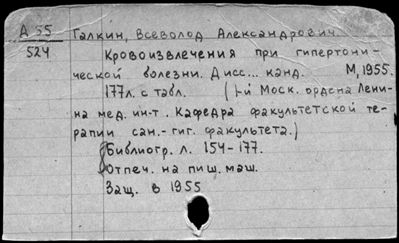 А 55 Галкин, Всеволод Александрович.
524 Кровоизвлечения при гипертони-
ческой болезни. Дисс... канд. М, 1955.
177л. с табл. (1-й Моск. ордена Лени-
на мед. ин-т. Кафедра факультетской те-
рапии сан.-гиг. факультета.)
Библиогр. л. 154-177.
Отпеч. на пиш. маш.
Защ. в 1955